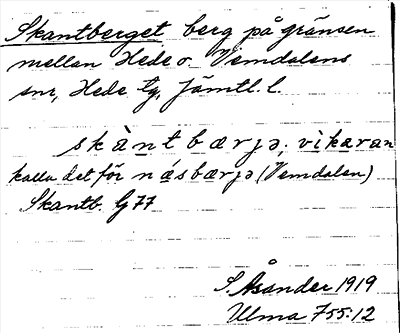 Skantberget berg på gränsen
mellan Hede o. Vemdalens
snr, Hede tg, Jämtl. l.
skànt bærjə; vìkaran
kalla det för násbærjə (Vemdalen)
Skantb. G 77
S. Åsander 1919
Ulma 755:12